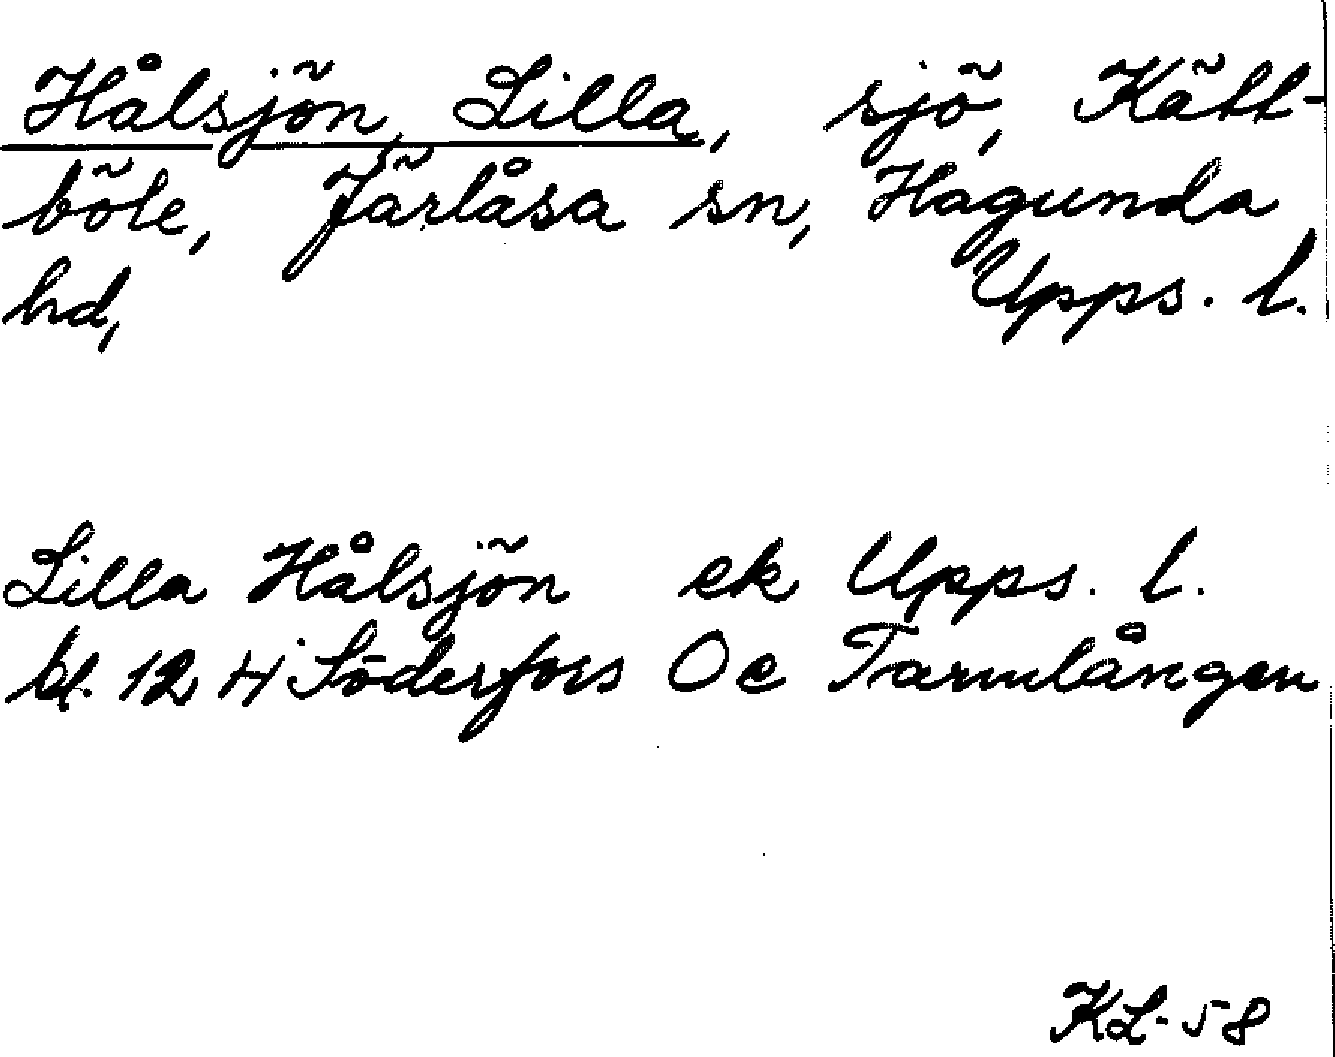 Hålsjön, Lilla, sjö, Kätt-
böle, Järlåsa sn, Hagunda
hd, Upps. l.
Lilla Hålsjön ek Upps. l.
bl. 12 H Söderfors Oc Tarmlången
KL-58